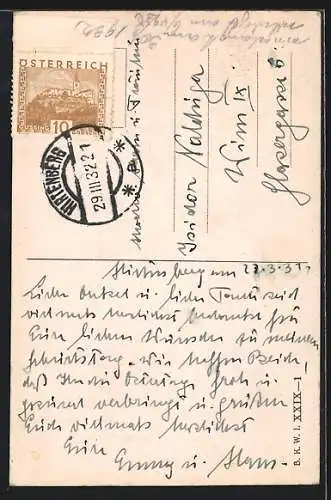 ÖSTERREICH
10
GÜSSING
HIRTENBERG
29.III.32.21
* a *
Isidor
Wien IX.
Hirtenberg am 27.3.31
Lieber Onkel u. liebe Tante seid
vielmals herzlichst bedankt für
Eure lieben Wünsche zu meinem
Geburtstag. Wir hoffen Beide,
daß Ihr die Ostertage froh u.
gesund verbringt u. grüßen
Euch vielmals herzlichst
Eure
u. Hans.
B. K. W. I. XXIX—1